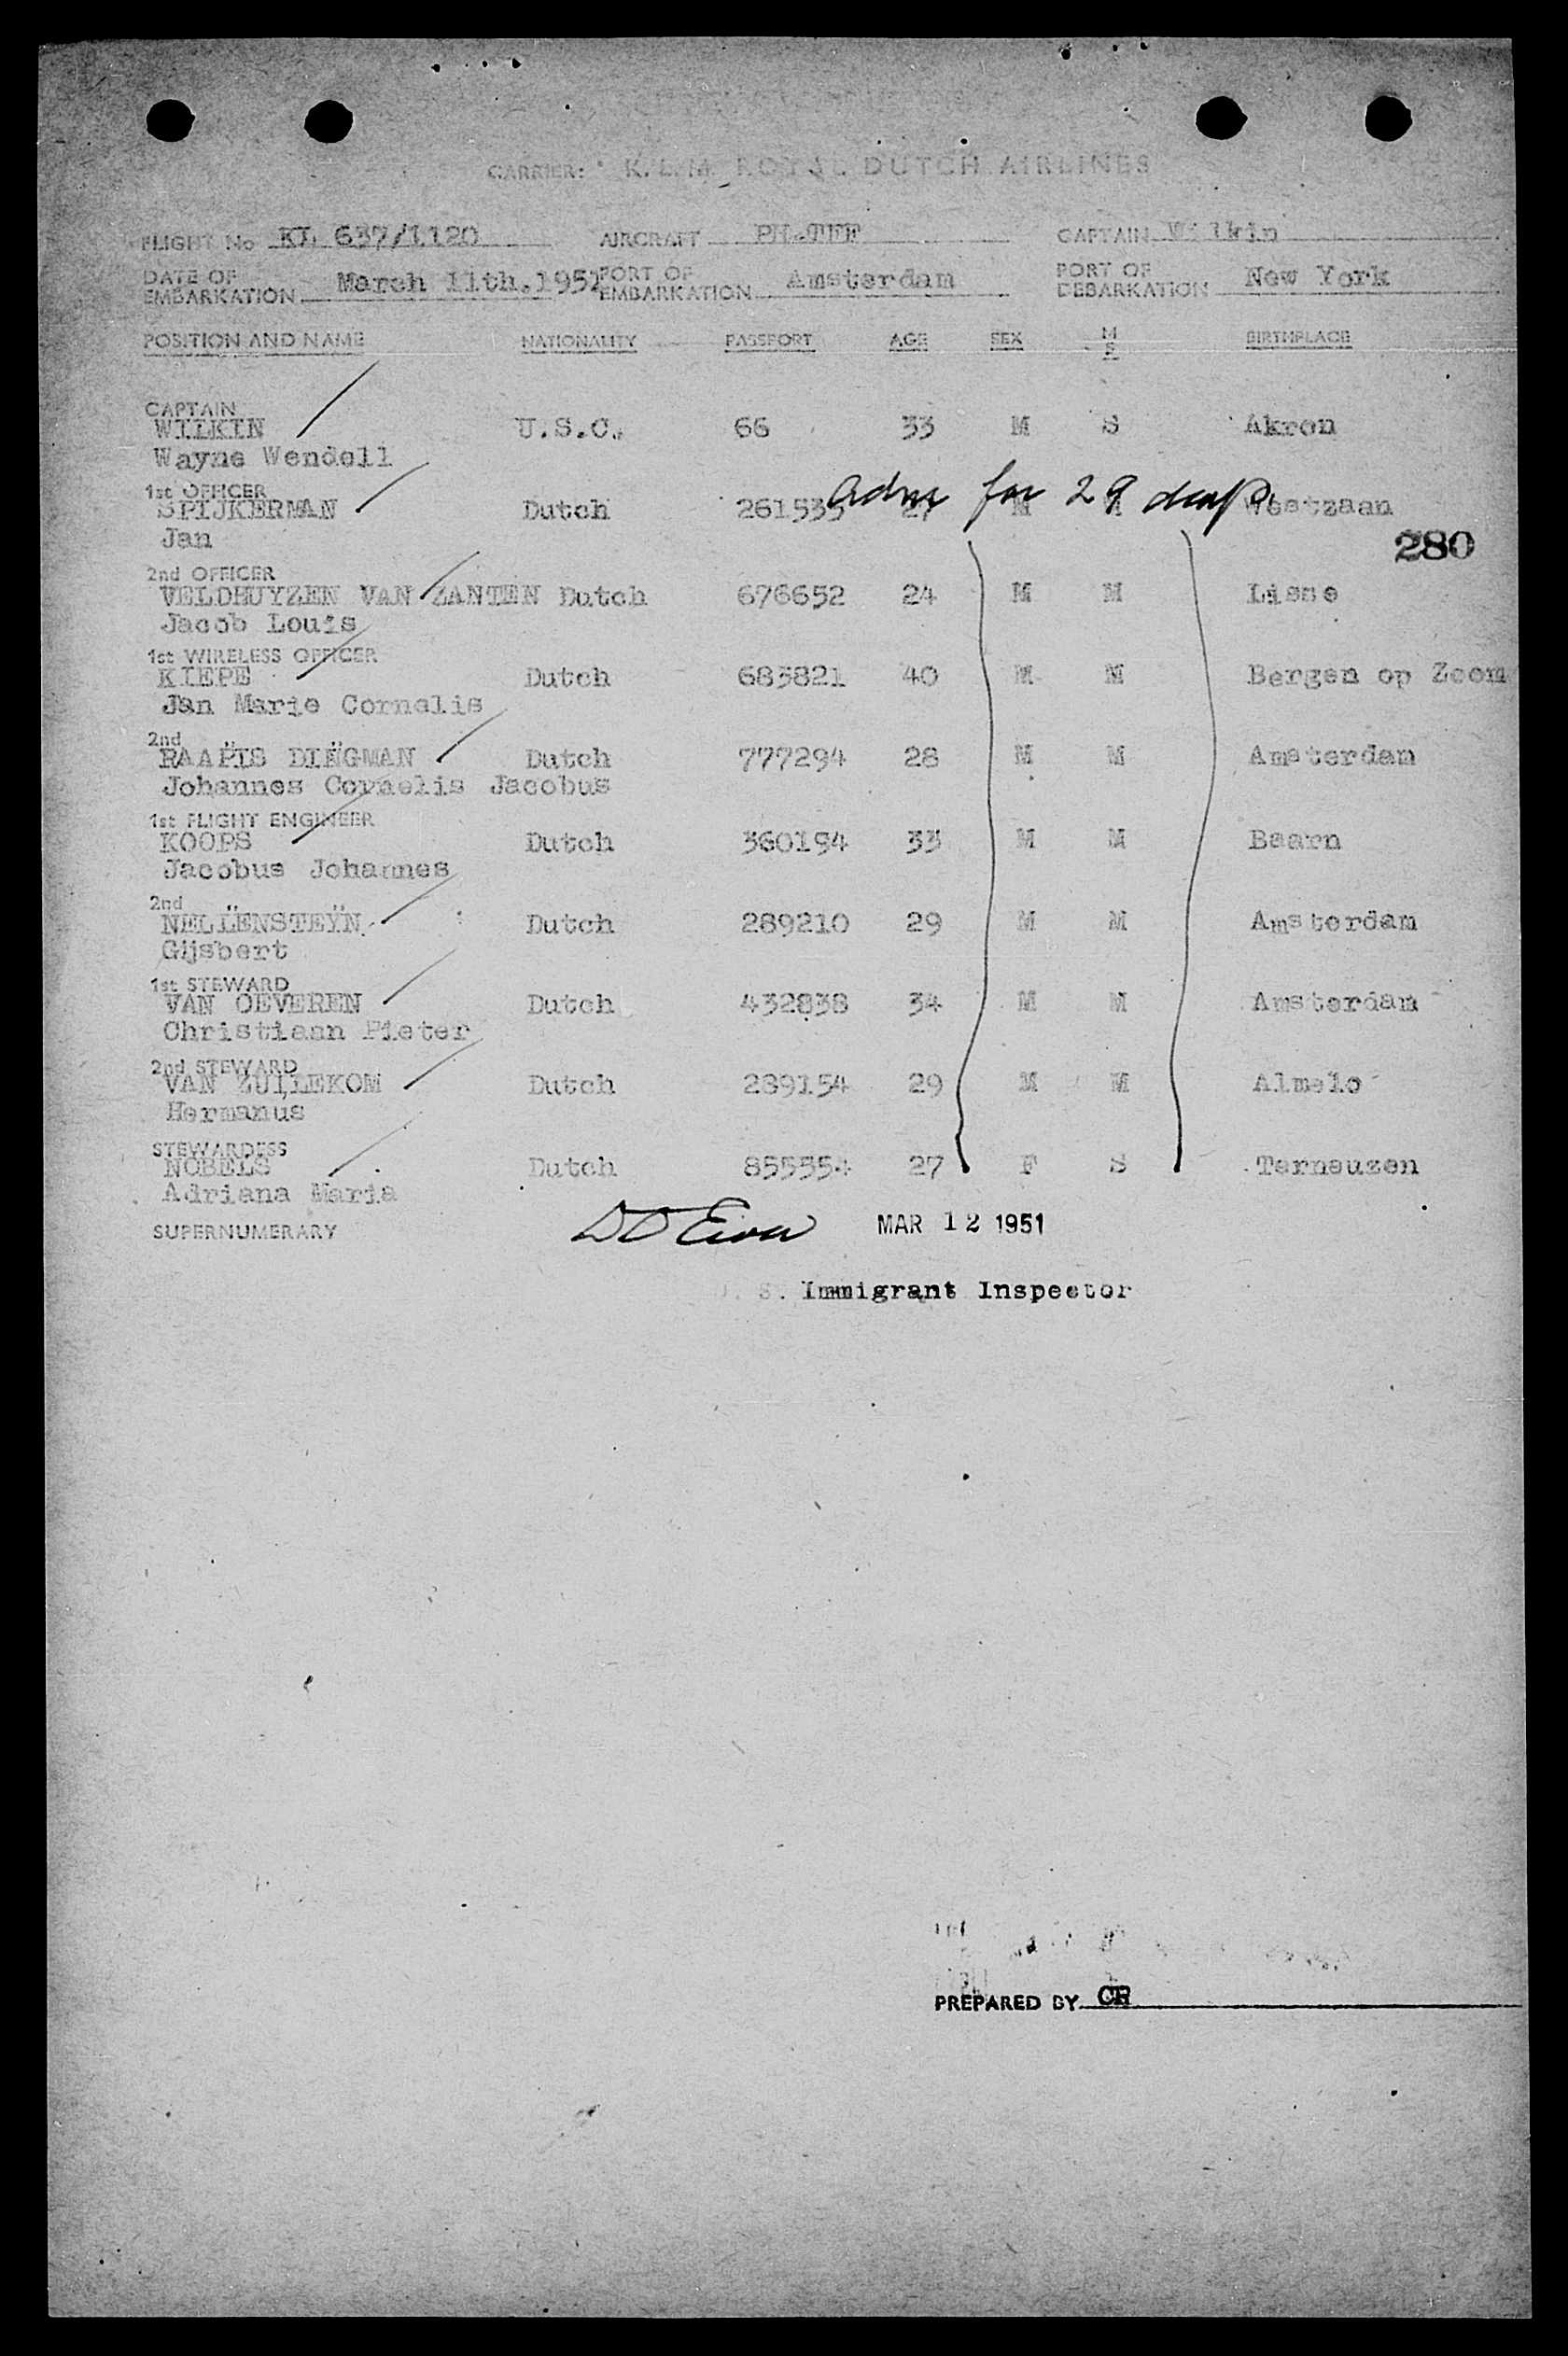 CARRIER: K.L.M. ROYAL DUTCH AIRLINES
FLIGHT No KL 637/1120 AIRCRAFT PH-TFF CAPTAIN Wilkin
DATE OF EMBARKATION March 11th.1951 PORT OF EMBARKATION Amsterdam PORT OF DEBARKATION New York
POSITION AND NAME NATIONALITY PASSPORT AGE SEX M S BIRTHPLACE
CAPTAIN
WILKIN U.S.C. 66 33 M S Akron
Wayne Wendell
adm for 29 days
1st OFFICER
SPIJKERMAN Dutch 261535 27 M M Westzaan
Jan
280
2nd OFFICER
VELDHUYZEN VAN ZANTEN Dutch 676652 24 M M Lisse
Jacob Louis
1st WIRELESS OFFICER
KIEPE Dutch 683821 40 M M Bergen op Zoom
Jan Marie Cornelis
2nd
RAAPIS DINGMAN Dutch 777294 28 M M Amsterdam
Johannes Cornelis Jacobus
1st FLIGHT ENGINEER
KOOPS Dutch 360194 33 M M Baarn
Jacobus Johannes
2nd
NELLENSTEŸN Dutch 289210 29 M M Amsterdam
Gijsbert
1st STEWARD
VAN OEVEREN Dutch 432838 34 M M Amsterdam
Christiaan Pieter
2nd STEWARD
VAN ZUILEKOM Dutch 289154 29 M M Almelo
Hermanus
STEWARDESS
NOBELS Dutch 855554 27 F S Terneuzen
Adriana Maria
SUPERNUMERARY
MAR 12 1951
U. S. Immigrant Inspector
PREPARED BY CR